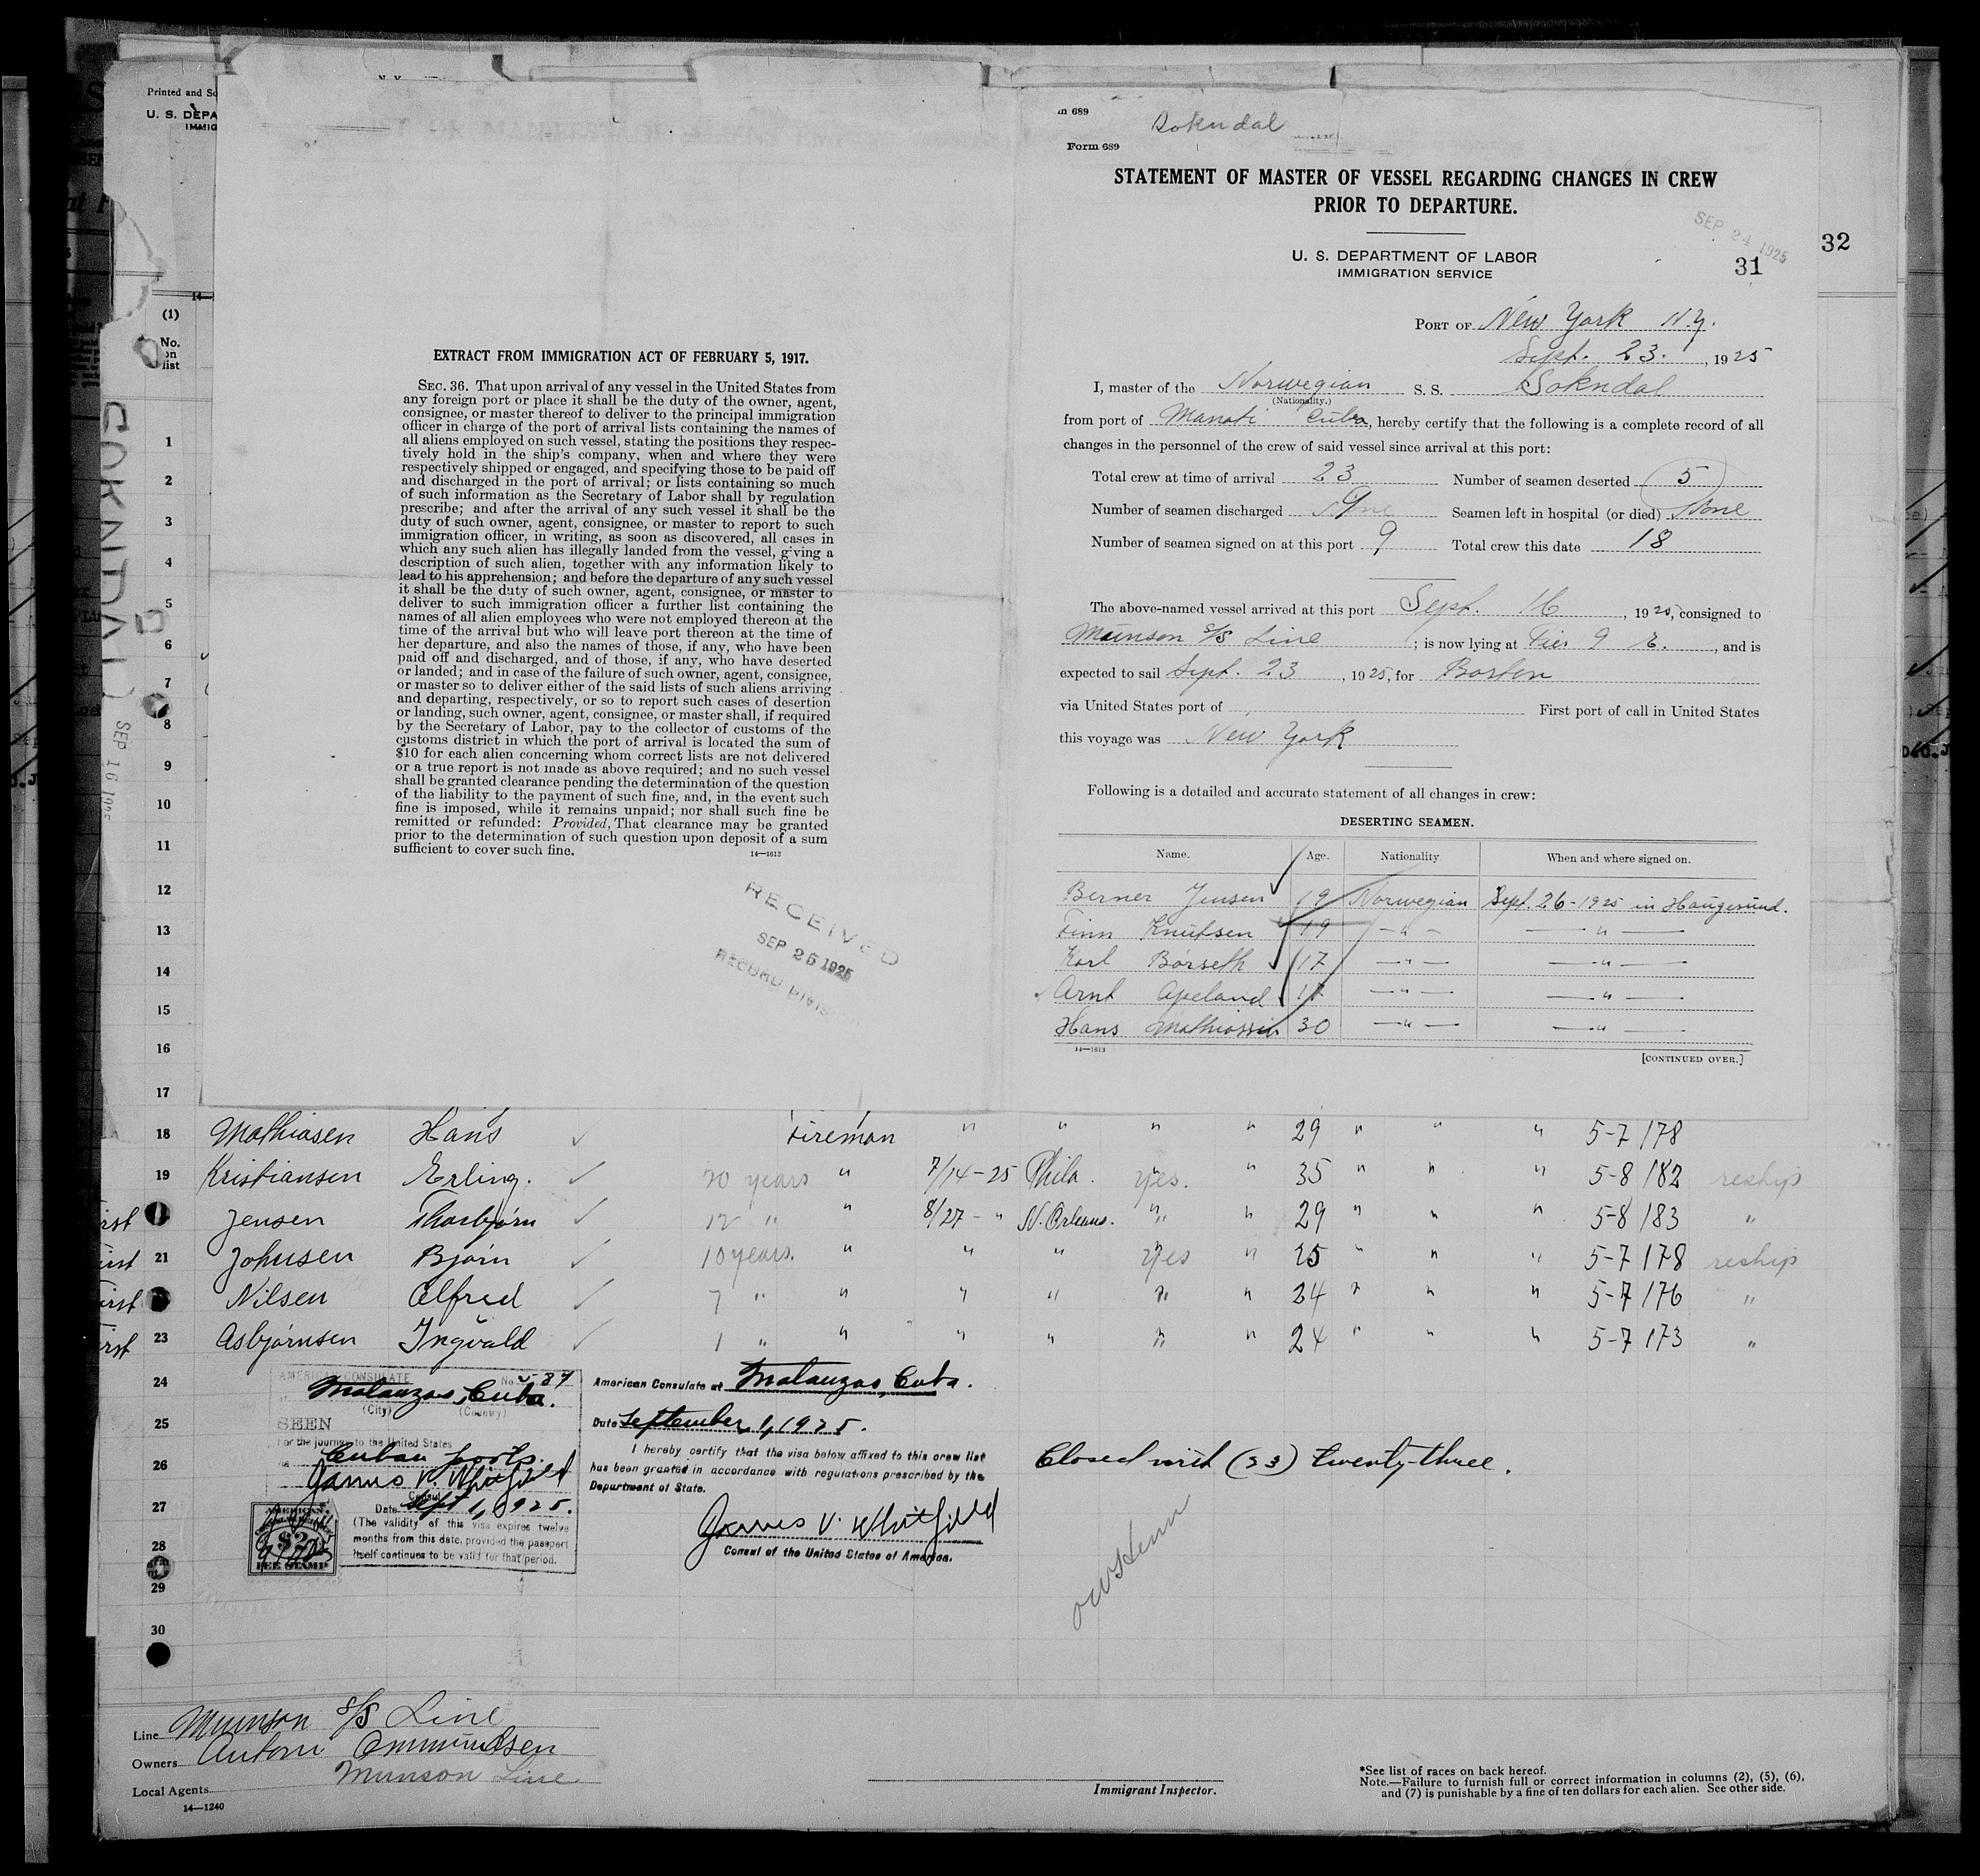 Printed and So
U. S. DEPA
IMMIG
(1)
No.
on
list
SOKNDAL
SEP 16 1925
EXTRACT FROM IMMIGRATION ACT OF FEBRUARY 5, 1917.
SEC. 36. That upon arrival of any vessel in the United States from
any foreign port or place it shall be the duty of the owner, agent,
consignee, or master thereof to deliver to the principal immigration
officer in charge of the port of arrival lists containing the names of
all aliens employed on such vessel, stating the positions they respec-
tively hold in the ship's company, when and where they were
respectively shipped or engaged, and specifying those to be paid off
and discharged in the port of arrival; or lists containing so much
of such information as the Secretary of Labor shall by regulation
prescribe; and after the arrival of any such vessel it shall be the
duty of such owner, agent, consignee, or master to report to such
immigration officer, in writing, as soon as discovered, all cases in
which any such alien has illegally landed from the vessel, giving a
description of such alien, together with any information likely to
lead to his apprehension; and before the departure of any such vessel
it shall be the duty of such owner, agent, consignee, or master to
deliver to such immigration officer a further list containing the
names of all alien employees who were not employed thereon at the
time of the arrival but who will leave port thereon at the time of
her departure, and also the names of those, if any, who have been
paid off and discharged, and of those, if any, who have deserted
or landed; and in case of the failure of such owner, agent, consignee,
or master so to deliver either of the said lists of such aliens arriving
and departing, respectively, or so to report such cases of desertion
or landing, such owner, agent, consignee, or master shall, if required
by the Secretary of Labor, pay to the collector of customs of the
customs district in which the port of arrival is located the sum of
$10 for each alien concerning whom correct lists are not delivered
or a true report is not made as above required; and no such vessel
shall be granted clearance pending the determination of the question
of the liability to the payment of such fine, and, in the event such
fine is imposed, while it remains unpaid; nor shall such fine be
remitted or refunded: Provided, That clearance may be granted
prior to the determination of such question upon deposit of a sum
sufficient to cover such fine.
14—1613
RECEIVED
SEP 26 1925
RECORD DIVIS
m 689
Sokndal
Form 689
STATEMENT OF MASTER OF VESSEL REGARDING CHANGES IN CREW
PRIOR TO DEPARTURE.
SEP 24 1925
32
U. S. DEPARTMENT OF LABOR
IMMIGRATION SERVICE
31
PORT OF New York N.Y.
Sept. 23. , 1925
I, master of the Norwegian S. S. Sokndal
(Nationality.)
from port of Manati Cuba, hereby certify that the following is a complete record of all
changes in the personnel of the crew of said vessel since arrival at this port:
Total crew at time of arrival 23 Number of seamen deserted 5
Number of seamen discharged 9 Seamen left in hospital (or died) None
Number of seamen signed on at this port 9 Total crew this date 18
The above-named vessel arrived at this port Sept. 16 , 1925, consigned to
Munson S/S Line ; is now lying at Pier 9 E. , and is
expected to sail Sept. 23 , 1925, for Boston
via United States port of First port of call in United States
this voyage was New York
Following is a detailed and accurate statement of all changes in crew:
DESERTING SEAMEN.
Name. Age. Nationality When and where signed on.
Berner Jensen 19 Norwegian Sept. 26-1925 in Haugesund.
Finn Knutsen 19 — " — — " —
Karl Børseth 17 — " — — " —
Arnt Apeland 17 — " — — " —
Hans Mathiassen 30 — " — — " —
14—1613
[CONTINUED OVER.]
1
2
3
4
5
6
7
8
9
10
11
12
13
14
15
16
17
18 Mathiasen Hans Fireman " " " " 29 " " " 5-7 178
19 Kristiansen Erling. 20 years " 7/14-25 Phila. yes. " 35 " " " 5-8 182 reship
rst Jensen Thorbjørn 12 " " 8/27- " N. Orleans. " " 29 " " " 5-8 183 "
irst 21 Johnsen Bjørn 10 years. " " " yes " 25 " " " 5-7 178 reship
irst Nilsen Alfred 7 " " " " " " 24 " " " 5-7 176 "
rst 23 Asbjørnsen Ingvald 1 " " " " " " 24 " " " 5-7 173 "
24
25
26
27
28
29
30
AMERICAN CONSULATE No. 87
Matanzas, Cuba.
(City) (Country)
SEEN
For the journey to the United States
via Cuban ports.
James V. Whitfield
Consul
Date Sept 1, 1925.
(The validity of this visa expires twelve
months from this date, provided the passport
itself continues to be valid for that period.
AMERICAN
$2
FEE STAMP
American Consulate at Matanzas, Cuba.
Date September 1, 1925.
I hereby certify that the visa below affixed to this crew list
has been granted in accordance with regulations prescribed by the
Department of State.
James V. Whitfield
Consul of the United States of America.
Closed with (23) twenty-three.
Line Munson S/S Line
Owners Antoni Ommundsen
Local Agents Munson Line
14—1240
Immigrant Inspector.
*See list of races on back hereof.
Note.—Failure to furnish full or correct information in columns (2), (5), (6),
and (7) is punishable by a fine of ten dollars for each alien. See other side.